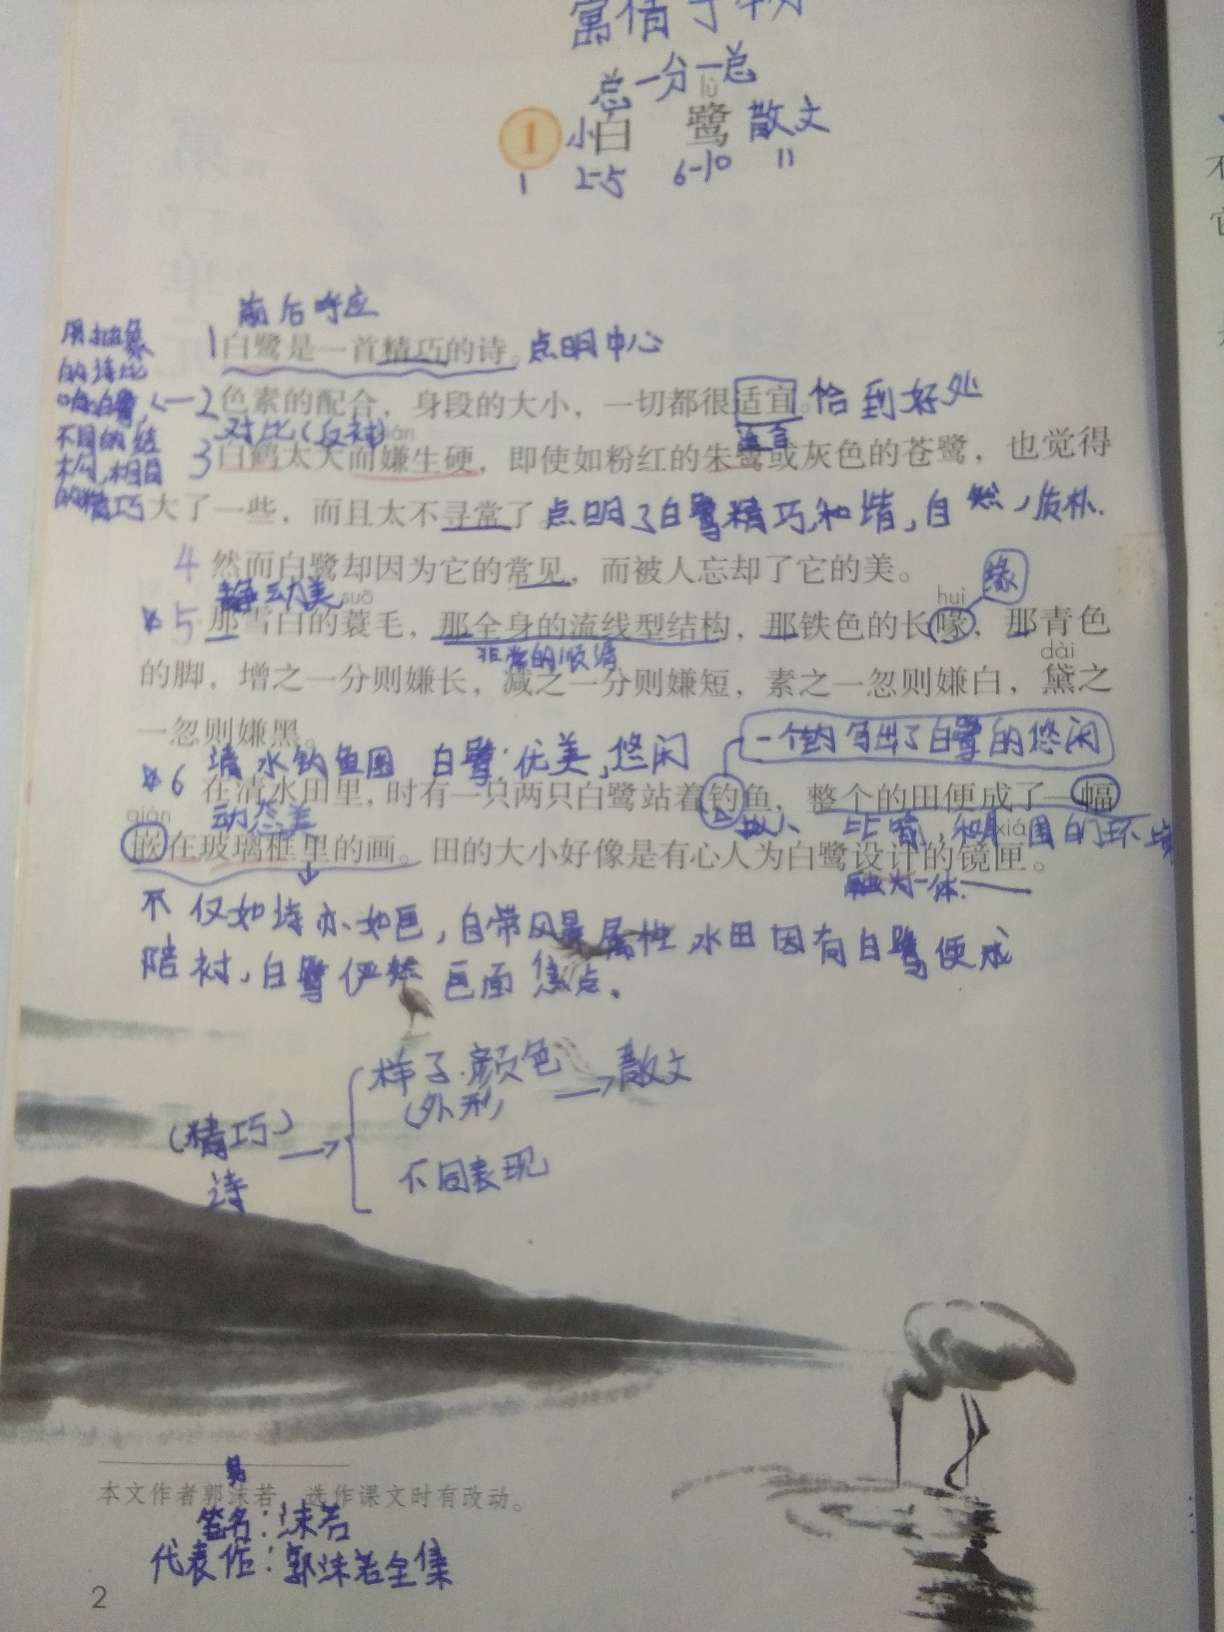 寓情于
总一分一总
lù
1 小白 鹭 散文
1 2-5 6-10 11
前后呼应
1 白鹭是一首精巧的诗。点明中心
用抽象
的诗比
喻白鹭,
不同的结
构,相同
的精巧
2 色素的配合，身段的大小，一切都很适宜。恰到好处
对比(反衬) 适宜
3 白鹤太大而嫌生硬，即使如粉红的朱鹭或灰色的苍鹭，也觉得
大了一些，而且太不寻常了。点明了白鹭精巧,和谐,自然,质朴.
4 然而白鹭却因为它的常见，而被人忘却了它的美。
静动美 suō huì 缘
5 那雪白的蓑毛，那全身的流线型结构，那铁色的长喙，那青色
非常的顺滑 dài
的脚，增之一分则嫌长，减之一分则嫌短，素之一忽则嫌白，黛之
一忽则嫌黑。
清水钓鱼图 白鹭:优美,悠闲 一个钓写出了白鹭的悠闲
6 在清水田里，时有一只两只白鹭站着钓鱼，整个的田便成了一幅
qiàn 动态美 拟人 比喻,和周围的环境
嵌在玻璃框里的画。田的大小好像是有心人为白鹭设计的镜匣。
融为一体.
不仅如诗亦如画,自带风景属性,水田因有白鹭便成
陪衬,白鹭俨然画面焦点。
样子.颜色 → 散文
(外形)
(精巧) →
诗
不同表现
本文作者郭沫若，选作课文时有改动。
笔名:沫若
代表作:郭沫若全集
2